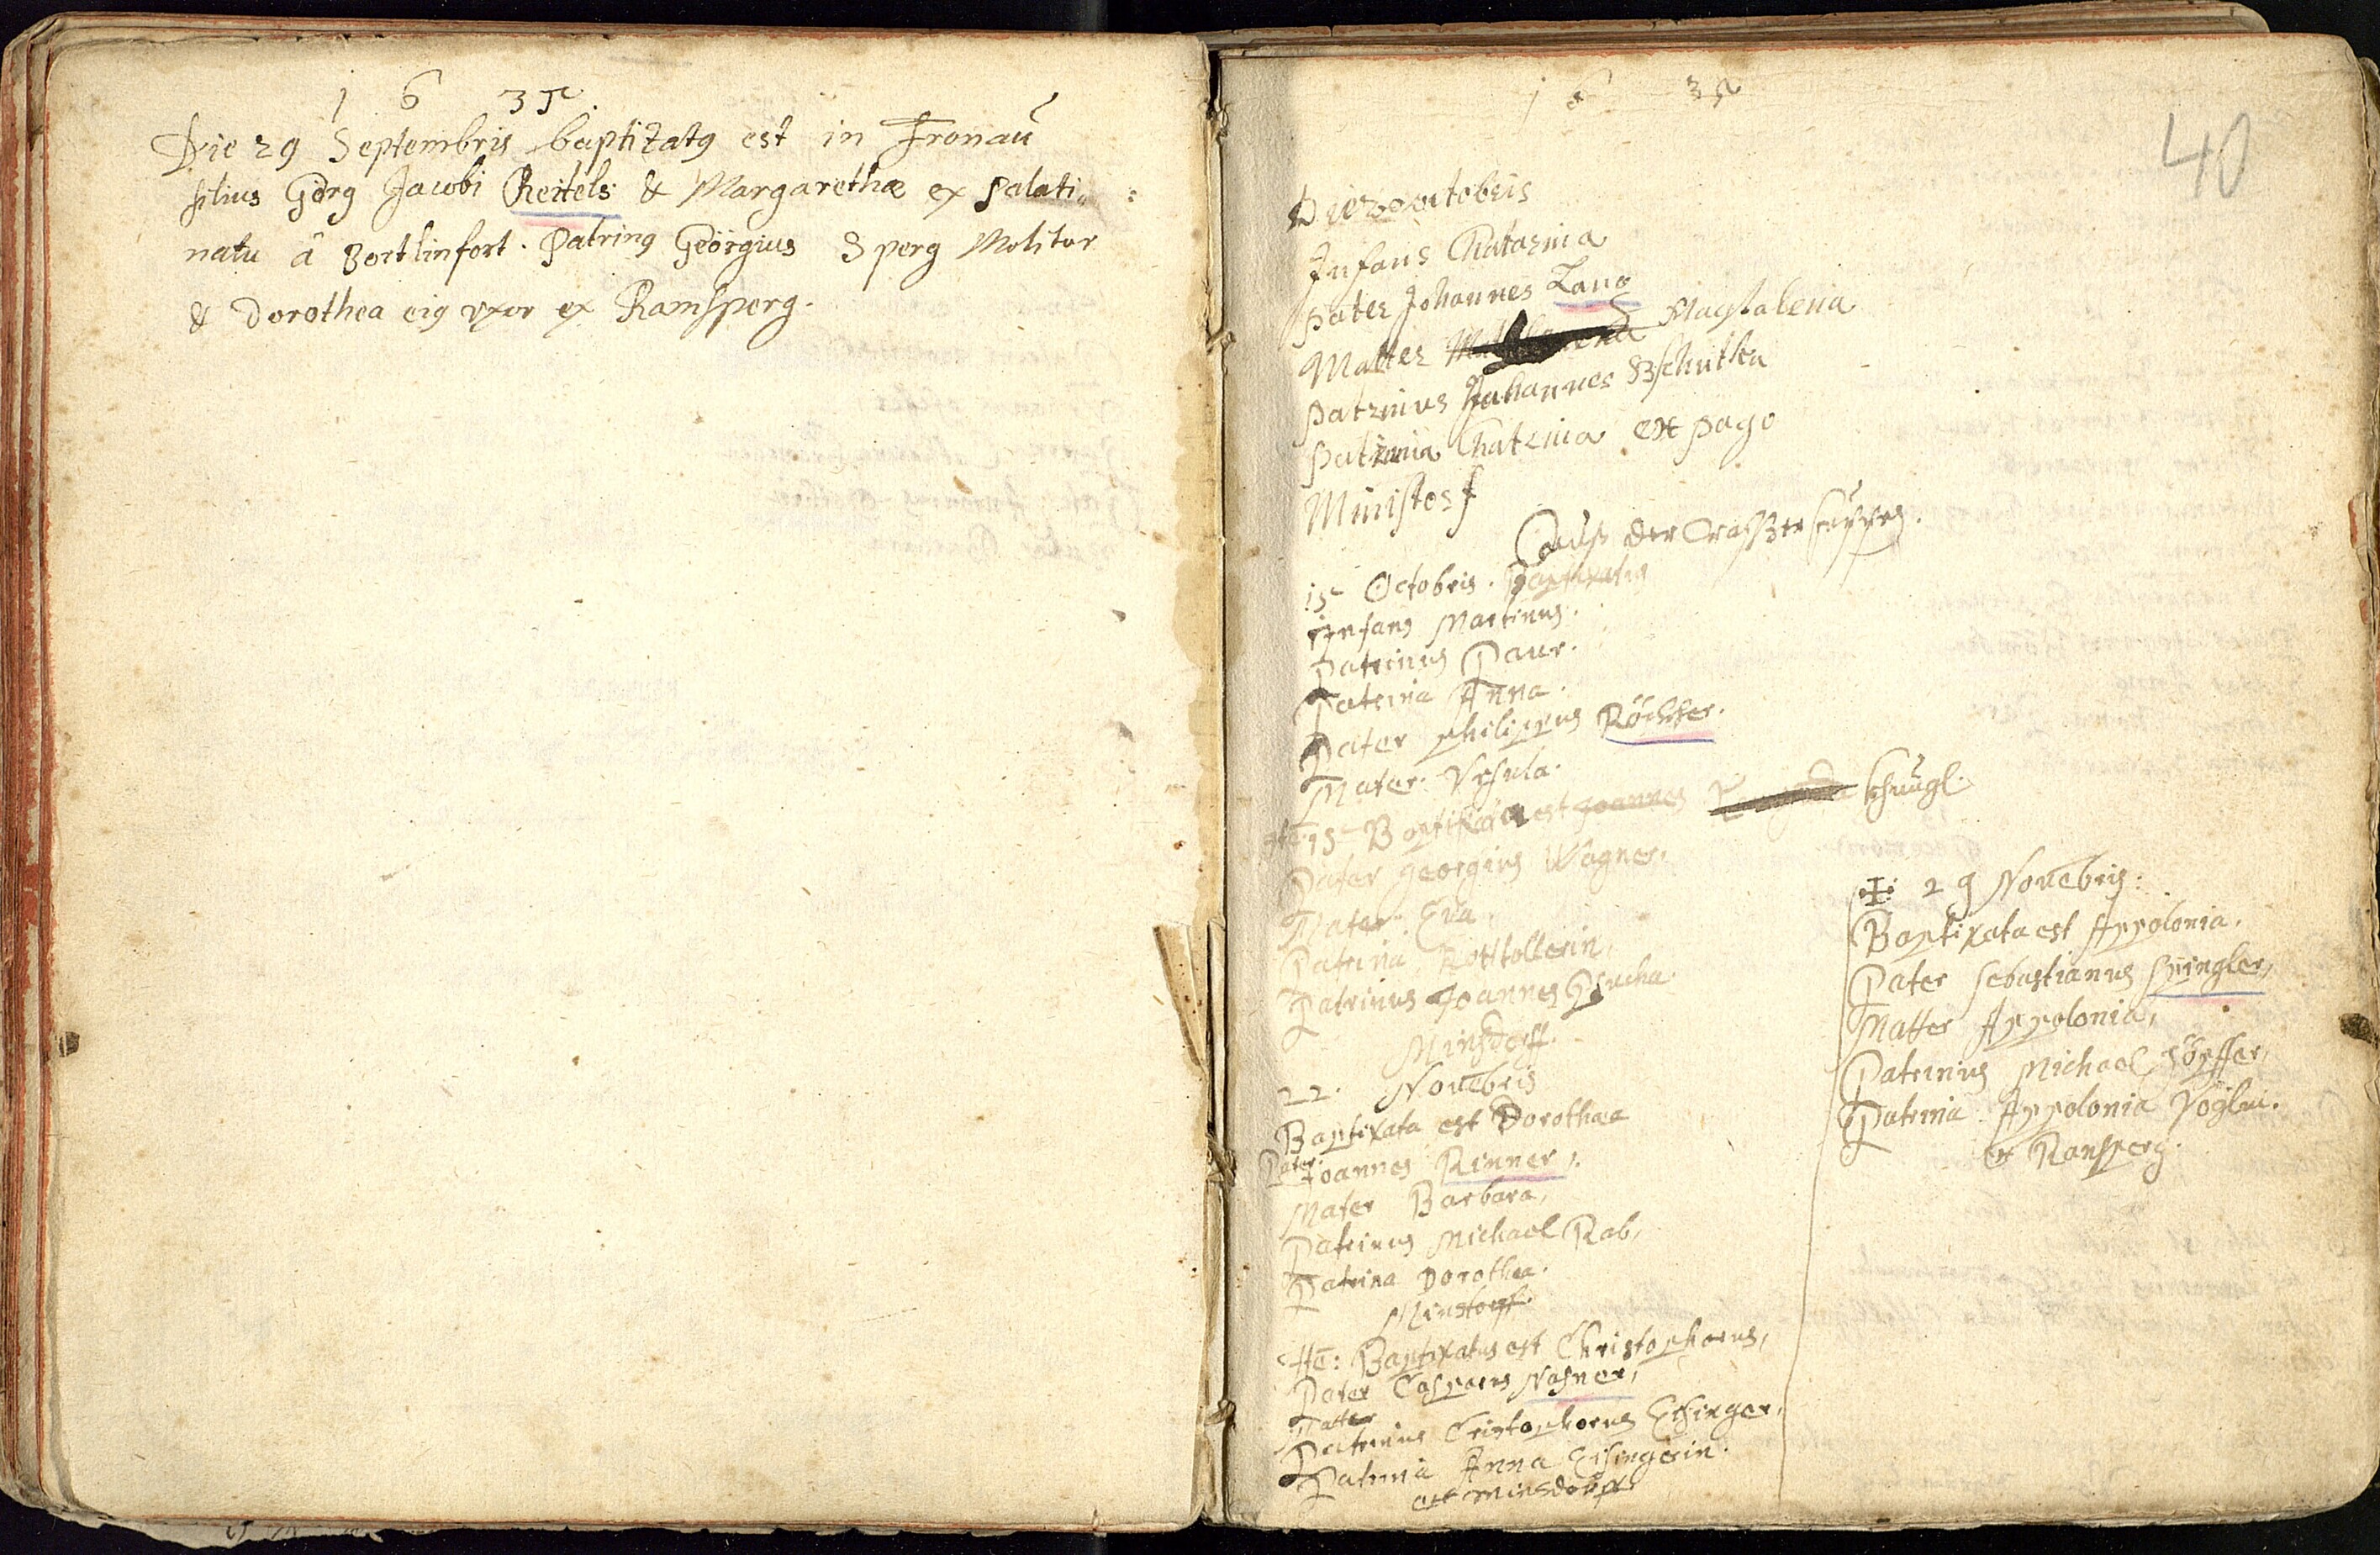 1 6 35
Die 29 Septembris baptizatg est in Fronau
filius Görg Jacobi Reitels & Margarethæ ex Palati=
natu â Bortlinfort. Patring Geörgius Sperg Molitor
& Dorothea eig vxor ex Ramsperg.
1 6 35
40
Die octobris
Infans Chatarina
Pater Johannes Lang
Matter Magtalena
Patrinus Johannes
Patrina Chatrina ex pago
Minister f
auß der
15 Octobris. Baptixatus
Infans Martinus.
Patrinus Paur.
Patrina Anna.
Pater philippus Röchker.
Mater. Vrsula.
Ite: 15 Baptixatus est Joannes
Pater georgius Wagner.
Mater. Eva.
Patrina Rottollerin.
Patrinus Joannes
Minsdorff.
22. Novebris
Baptixata est Dorothaea
Pater Joannes Rinner,
Mater Barbara,
Patrinus Michael Rab,
Patrina Dorothea.
Minstorff.
Ite: Baptixatus est Christophorus,
Pater Casparus Nasner,
Matter
Patrinus Cristophorus Eisinger,
Patrina Anna Eisingerin.
ex Minsdorff
29 Novebris:
Baptixata est Appolonia,
Pater Sebastianus
Matter Appolonia,
Patrinus Michael Töpffer,
Patrina Appolonia Voglin.
ex Ransperg.